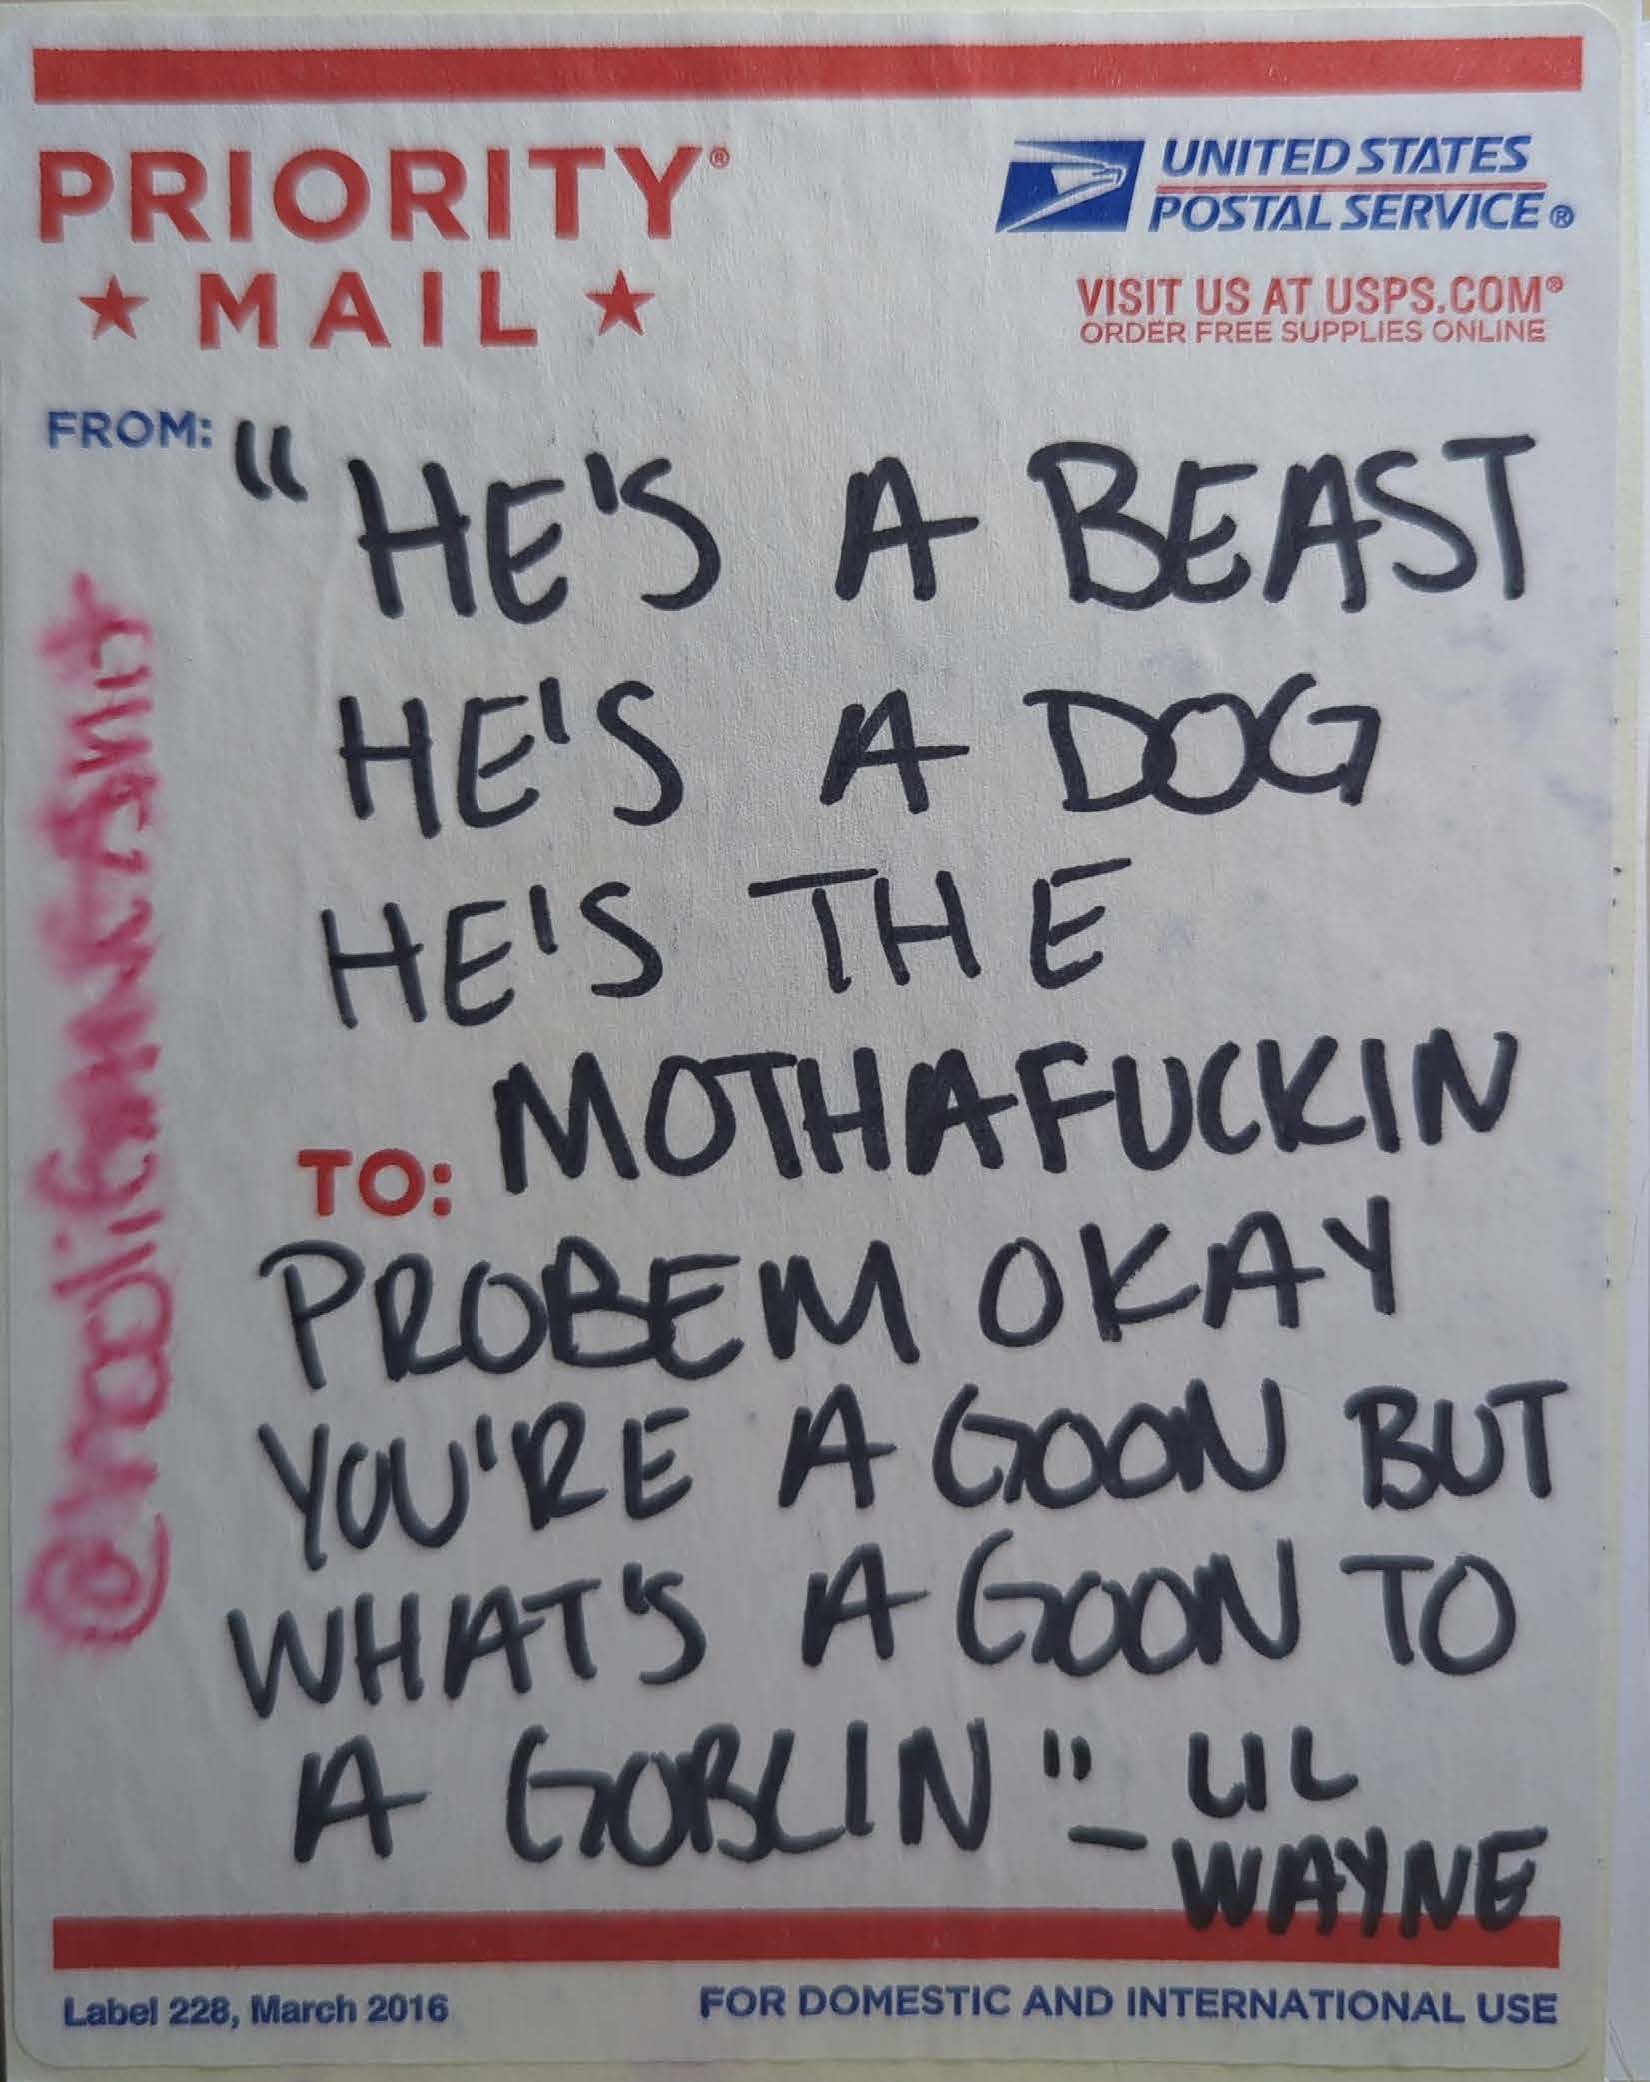 PRIORITY®
★ MAIL ★
UNITED STATES
POSTAL SERVICE®
VISIT US AT USPS.COM®
ORDER FREE SUPPLIES ONLINE
FROM:
"HE'S A BEAST
HE'S A DOG
HE'S THE
MOTHAFUCKIN
TO:
PROBEM OKAY
YOU'RE A GOON BUT
WHAT'S A GOON TO
A GOBLIN" – LIL
WAYNE
Label 228, March 2016
FOR DOMESTIC AND INTERNATIONAL USE